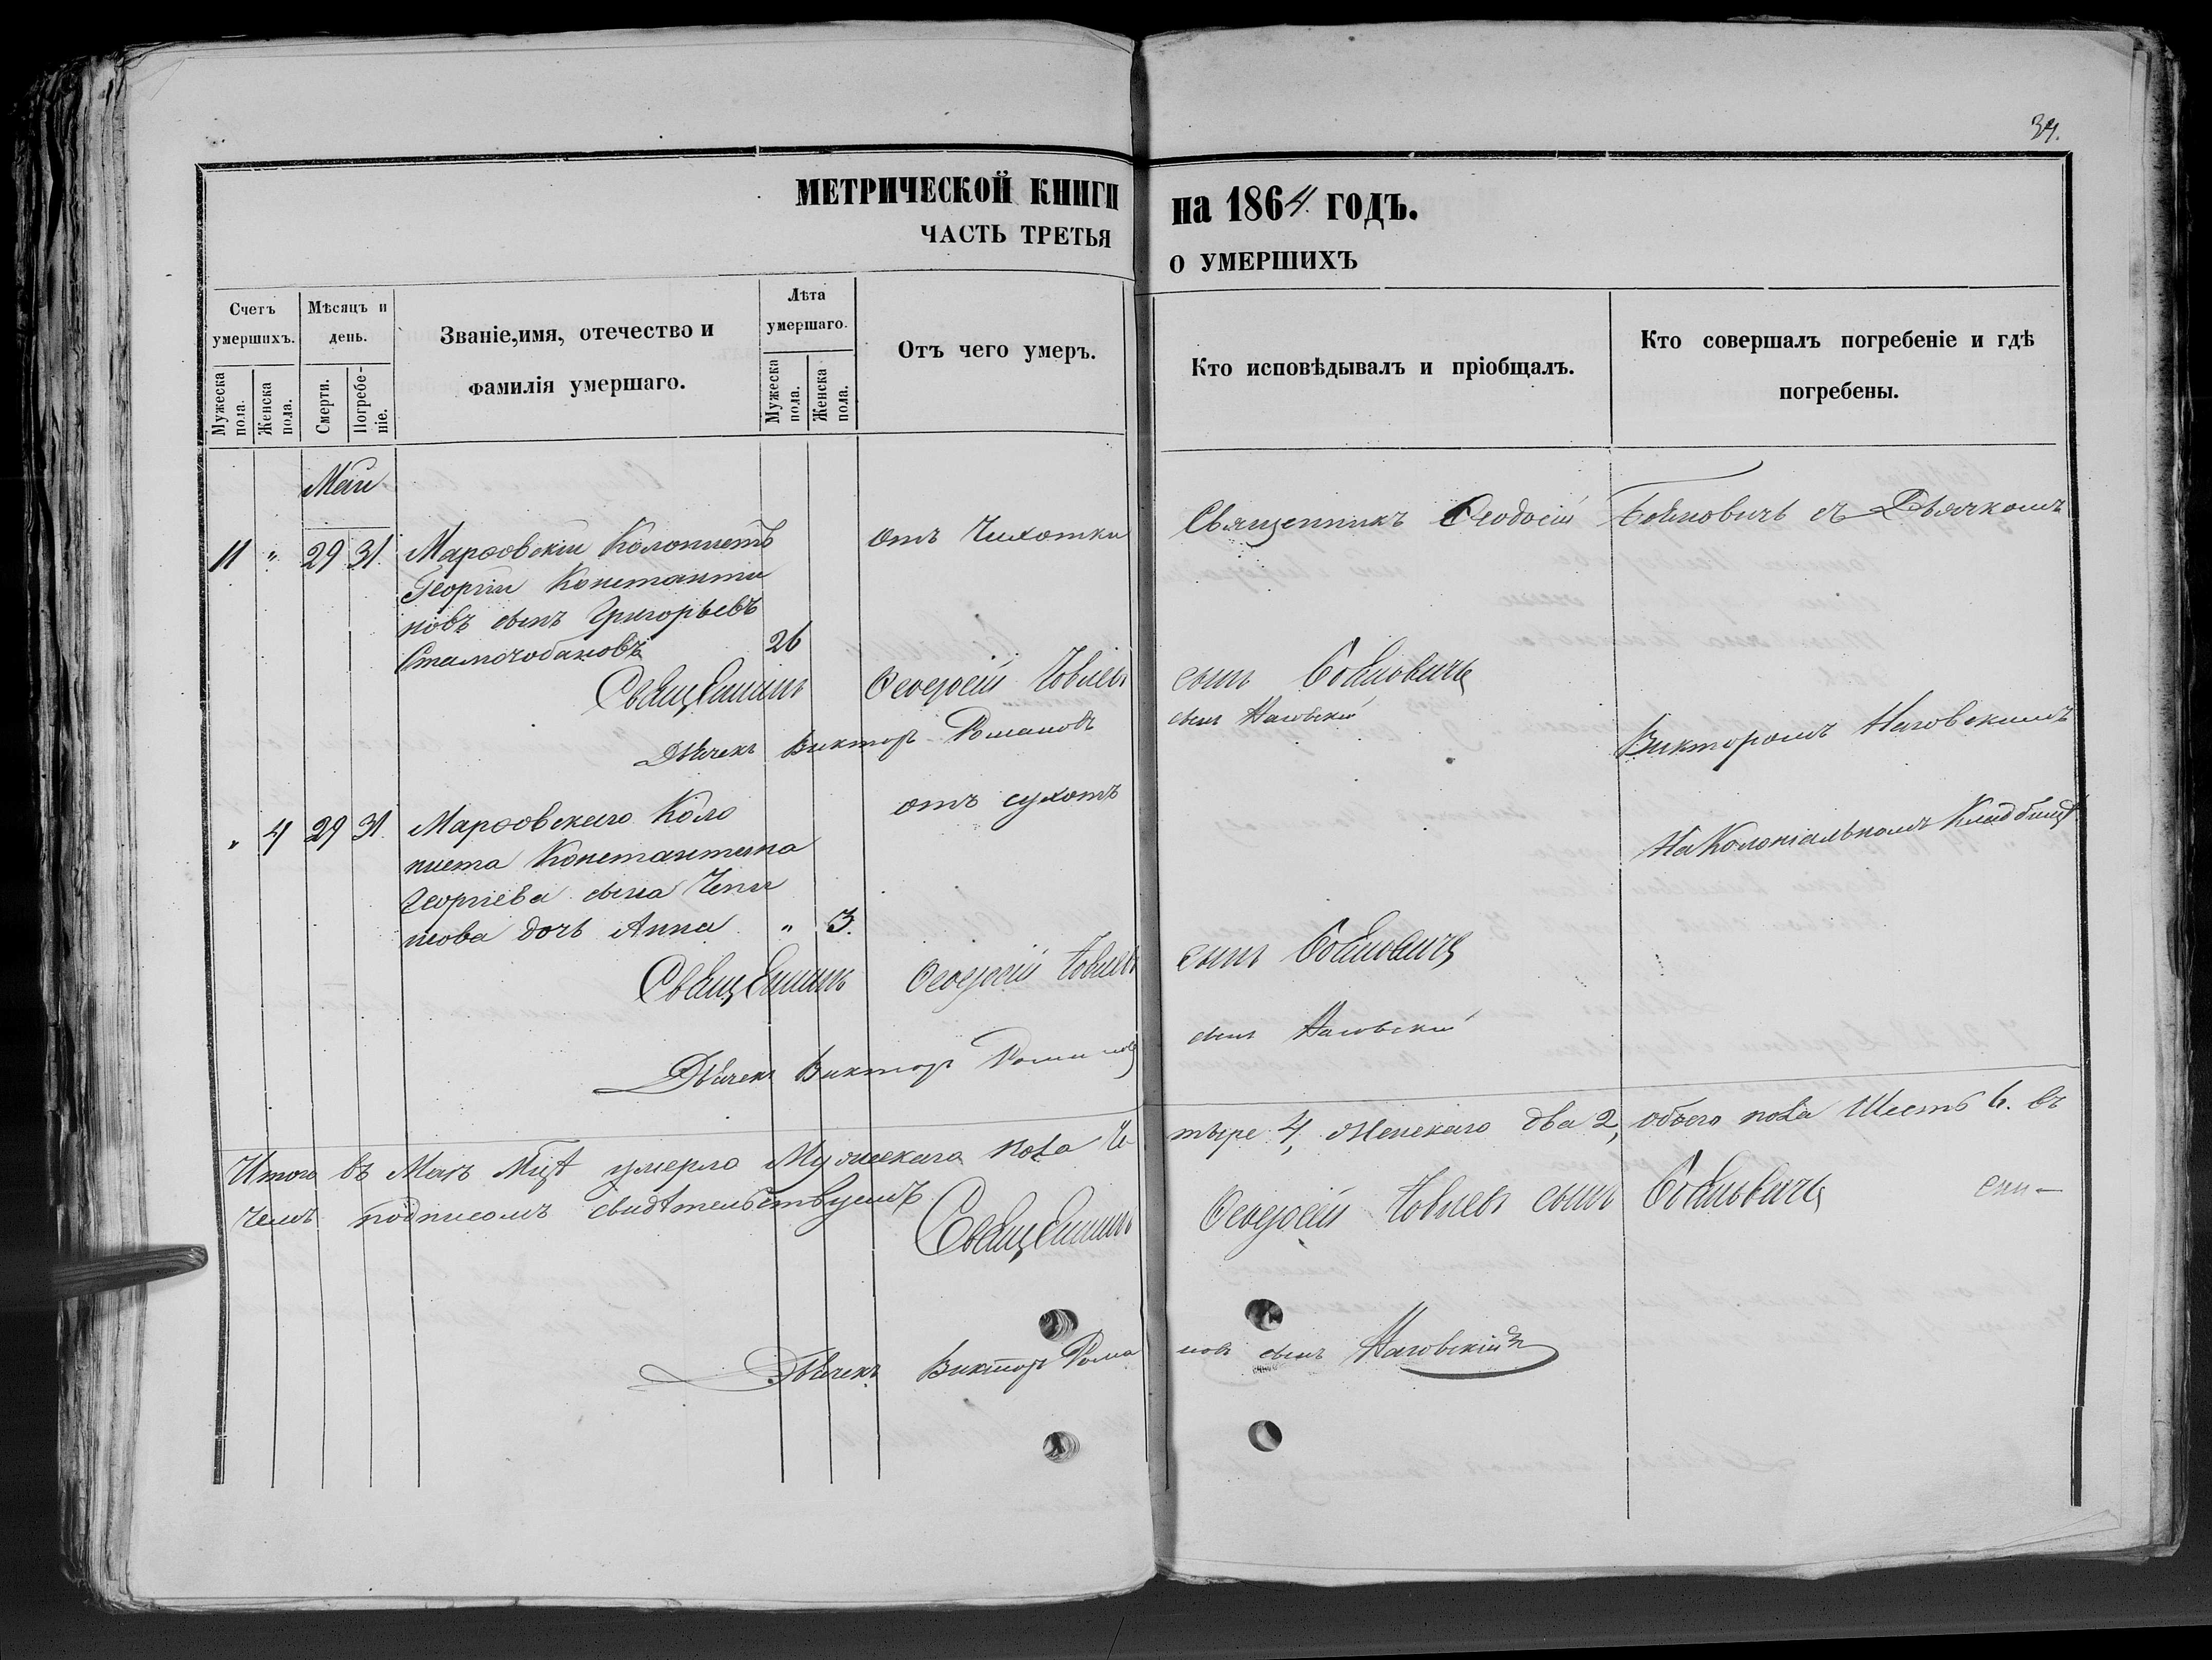 34.
МЕТРИЧЕСКОЙ КНИГИ на 1864. ГОДЪ.
ЧАСТЬ ТРЕТЬЯ О УМЕРШИХЪ
Счетъ умершихъ.
Мужеска пола.
Женска пола.
Мѣсяцъ и день.
Смерти.
Погребеніе.
Званіе, имя, отечество и фамилія умершаго.
Лѣта умершаго.
Мужеска пола.
Женска пола.
Отъ чего умеръ.
Кто исповѣдывалъ и пріобщалъ.
Кто совершалъ погребеніе и гдѣ погребены.
Май
11 " 29 31. Марѳовскій Колонистъ отъ Чихотки Священникъ Ѳеодосій Бойновичъ съ Дьячкомъ
Георгій Константи
новъ сынъ Григорьевъ
Стамочобановъ 26
Священникъ Ѳеодосій Іовлевъ сынъ
Дьячекъ Викторъ Романовъ сынъ Наговскій
Викторомъ Наговскимъ
" 4 29 31. Марѳовскаго Коло отъ сухотъ
ниста Константина На Колоніальномъ Кладбищѣ
Георгіева сына
дочь Анна " 3.
Священникъ Ѳеодосій Іовлевъ сынъ
Дьячекъ Викторъ Романовъ сынъ Наговскій
Итого въ Маѣ Мцѣ умерло Мужескаго пола Че тыре 4, Женскаго два 2, обоего пола Шесть 6. въ
чемъ подписомъ свидѣтельствуемъ
Священникъ Ѳеодосій Іовлевъ сынъ
Дьячекъ Викторъ Рома новъ сынъ Наговскій